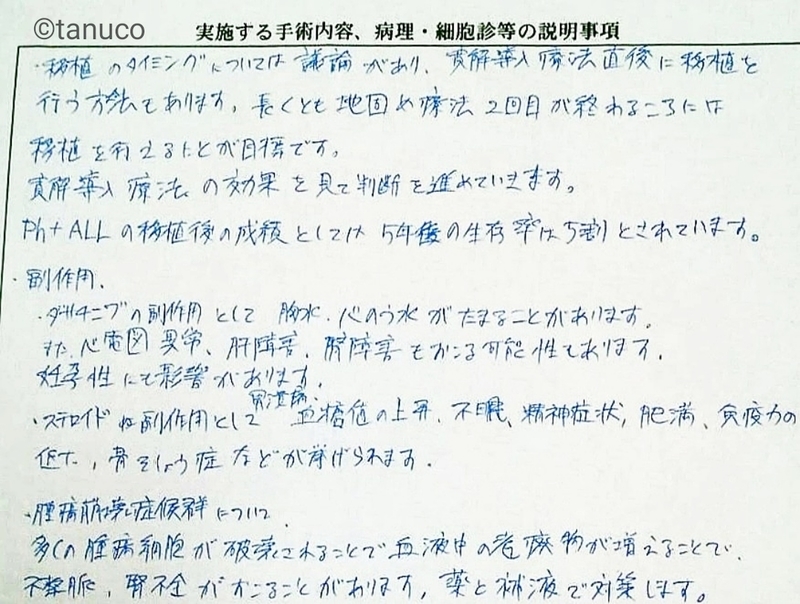 ©tanuco
実施する手術内容、病理・細胞診等の説明事項
・移植のタイミングについては議論があり、寛解導入療法直後に移植を
行う方法もあります。長くとも地固め療法2回目が終わるころには
移植を行えることが目標です。
寛解導入療法の効果を見て判断を進めていきます。
Ph+ALLの移植後の成績としては5年後の生存率は5割とされています。
・副作用.
・ダサチニブの副作用として胸水、心のう水がたまることがあります。
また、心電図異常、肝障害、腎障害もおこる可能性もあります。
妊孕性にも影響があります。
胃潰瘍、
・ステロイドは副作用として血糖値の上昇、不眠、精神症状、肥満、免疫力の
低下、骨そしょう症などが挙げられます。
・腫瘍崩壊症候群について
多くの腫瘍細胞が破壊されることで血液中の老廃物が増えることで、
不整脈、腎不全がおこることがあります。薬と補液で対策します。